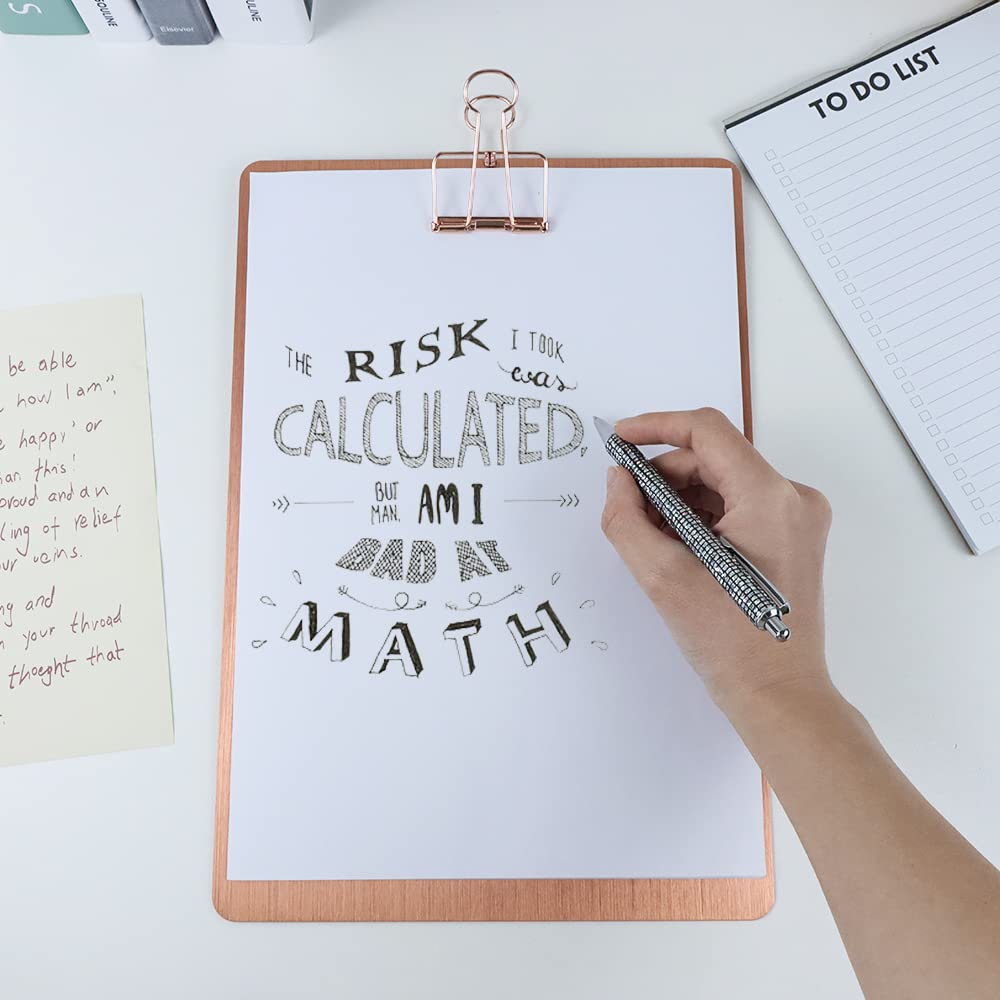 S
SOULINE
Elsevier
OULINE
TO DO LIST
THE RISK I TOOK
was
CALCULATED,
BUT
MAN, AM I
BAD AT
MATH
be able
how I am",
happy' or
an this!
proud and an
ling of relief
our veins.
ng and
your throad
thoeght that